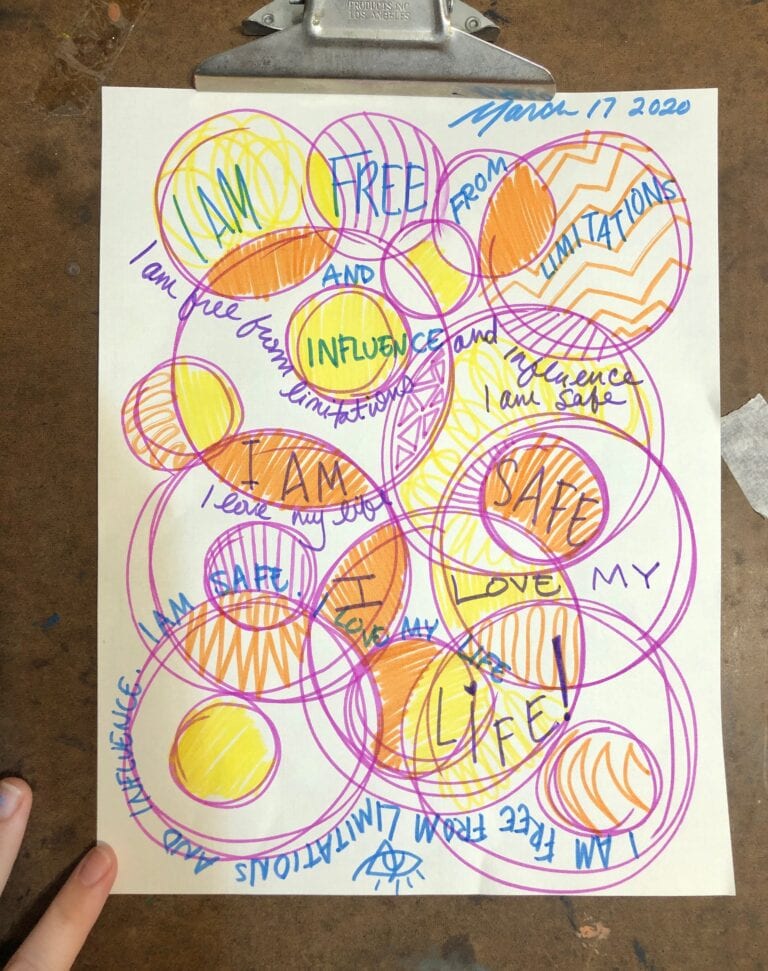 PRODUCTS INC
LOS ANGELES
March 17 2020
I AM FREE FROM LIMITATIONS
AND
INFLUENCE
I am free from limitations and influence
I am safe
I AM SAFE
I love my life
I LOVE MY
LIFE!
I AM FREE FROM LIMITATIONS AND INFLUENCE. I AM SAFE. I LOVE MY LIFE